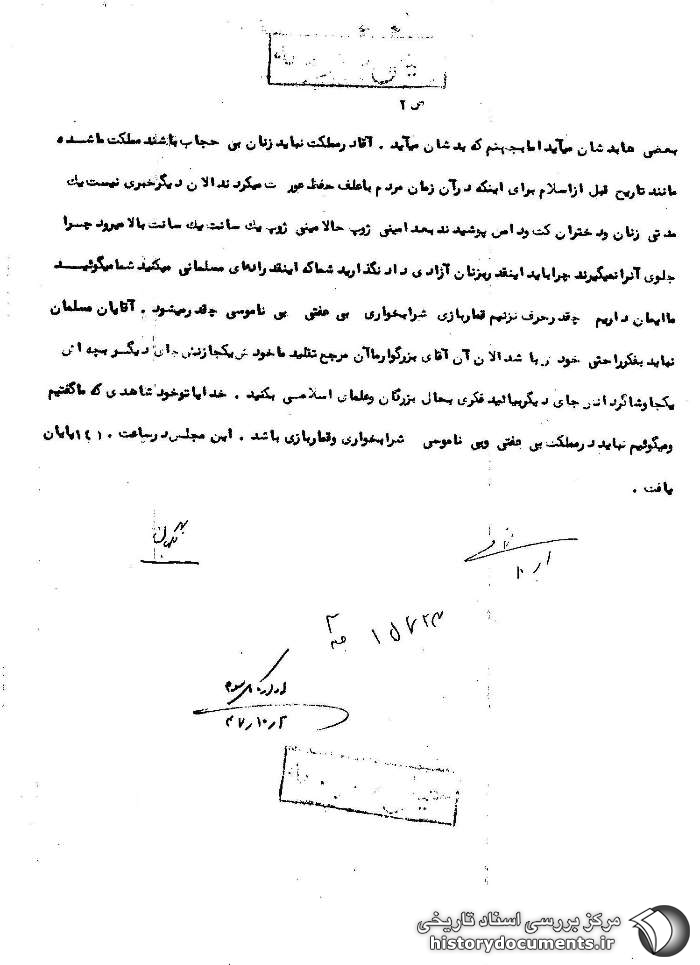 ص ۲
بعضی هابد شان میآید امابجهنم که بد شان میآید . آقاد رمملکت نباید زنان بی حجاب باشند مملکت ماشده
مانند تاریخ قبل ازاسلام برای اینکه درآن زمان مردم باعلف حفظ عورت میکردند الان دیگرخبری نیست یك
مدتی زنان ودختران کت ودامن پوشیدند بعد امینی ژوپ حالا مینی ژوپ یك سانت یك سانت بالا میرود چرا
جلوی آنرا نمیگیرند چراباید اینقدر بزنان آزادی داد نگذارید شماکه اینقدر ادعای مسلمانی میکنید شما میگوئید
ماایمان داریم چقدر حرف بزنیم قماربازی شرابخواری بی عفتی بی ناموسی چقدر میشود . آقایان مسلمان
نباید بفکر راحتی خود باشد الان آن آقای بزرگوار ماآن مرجع تقلید ما خودش یکجا زنش جای دیگر بچه اش
یکجا وشاگردانش جای دیگر بیائید فکری بحال بزرگان وعلمای اسلامی بکنید . خدایا توخود شاهدی که ماگفتیم
ومیگوئیم نباید درمملکت بی عفتی وبی ناموسی شرابخواری وقماربازی باشد . این مجلس درساعت ۱۴۱۰ پایان
یافت .
نگهبان
۱۵۷۲۳
اداره کل سوم
۴۷/۱۰/۲
مرکز بررسی اسناد تاریخی
historydocuments.ir